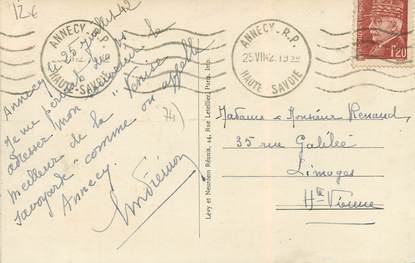 12€
ANNECY R.P.
HAUTE-SAVOIE
ANNECY - R.P.
25 VII 42. 19
HAUTE SAVOIE
1,20
Annecy le 25 Juillet 42
Je me permets de
adresser mon
meilleur de la "Venise
savoyarde" comme on appelle
Annecy.
(74)
Lévy et Neurdein Réunis, 44, Rue Letellier, Paris. Imp.
Madame & Monsieur Renaud,
35 rue Galilée
Limoges
Hte Vienne